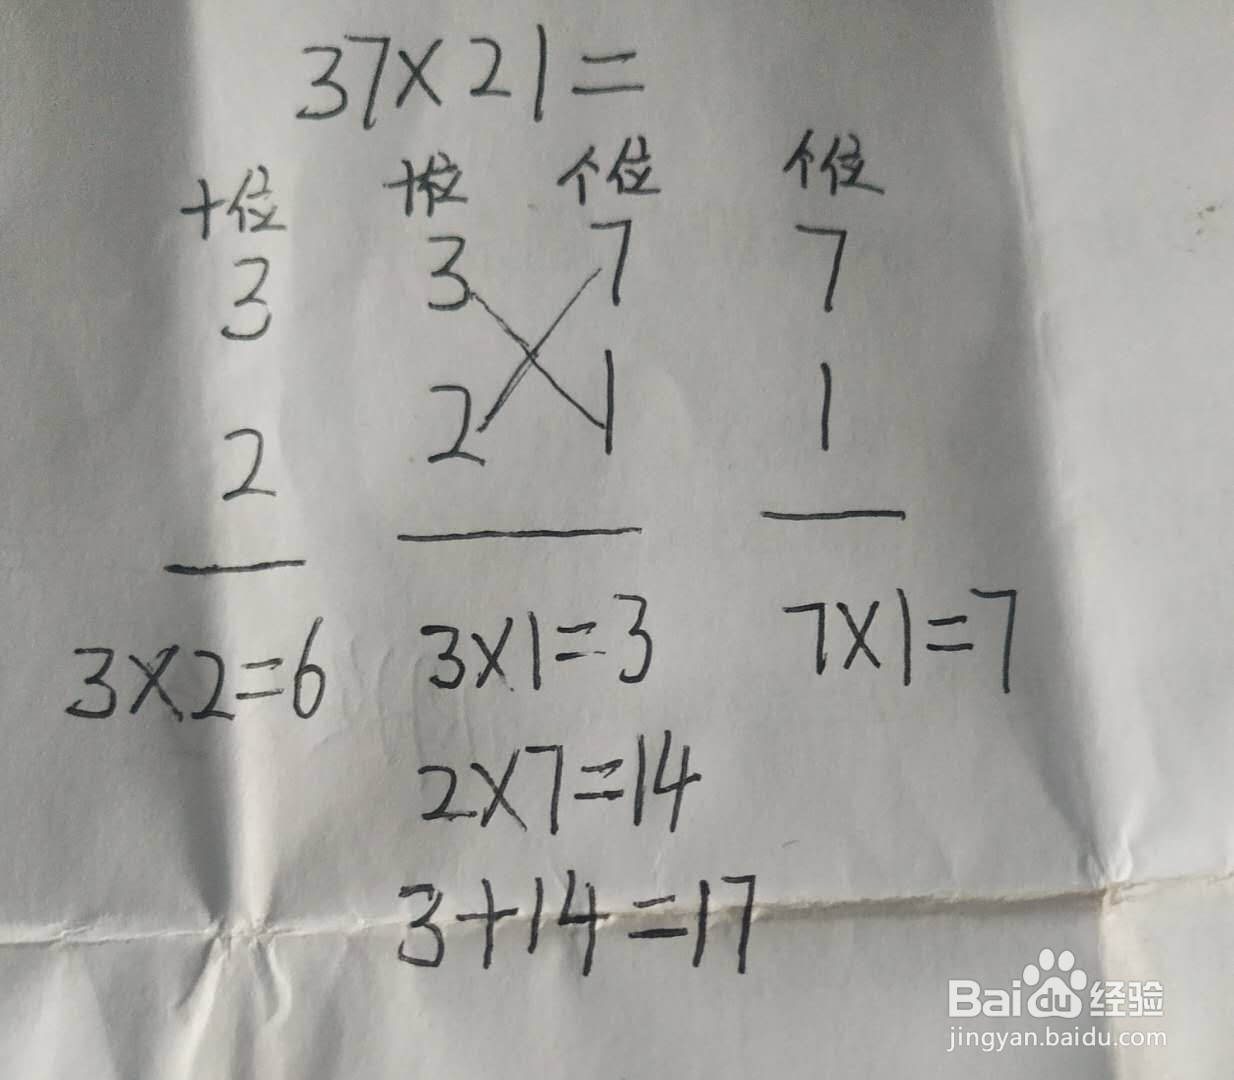 37×21=
十位 十位 个位 个位
3 3 7 7
2 2 1 1
3×2=6 3×1=3 7×1=7
2×7=14
3+14=17
Baidu经验
jingyan.baidu.com